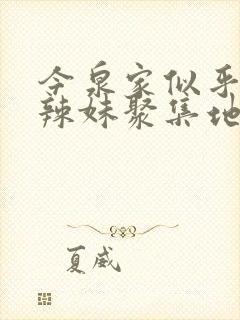 今泉家似乎
辣妹聚集地
夏威